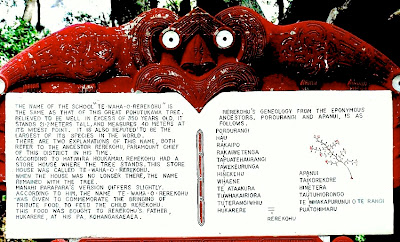 THE NAME OF THE SCHOOL "TE WAHA-O-REREKOHU" IS
THE SAME AS THAT OF THIS GREAT POHUTUKAWA TREE
BELIEVED TO BE WELL IN EXCESS OF 350 YEARS OLD. IT
STANDS METERS TALL, AND MEASURES 40 METERS AT
ITS WIDEST POINT. IT IS ALSO REPUTED TO BE THE
LARGEST OF ITS SPECIES IN THE WORLD.
THERE ARE TWO EXPLANATIONS OF THIS NAME, BOTH
REFER TO THE ANCESTOR REREKOHU, PARAMOUNT CHIEF
OF THIS DISTRICT IN HIS TIME.
ACCORDING TO MATARURA HOUKAMAU, REREKOHU HAD A
STORE HOUSE WHERE THE TREE STANDS. THIS STORE
HOUSE WAS CALLED TE-WAHA-O-REREKOHU.
WHEN THE HOUSE WAS NO LONGER THERE, THE NAME
REMAINED WITH THE TREE.
MANAHI PARAPARA'S VERSION DIFFERS SLIGHTLY.
ACCORDING TO HIM, THE NAME TE-WAHA-O-REREKOHU
WAS GIVEN TO COMMEMORATE THE BRINGING OF
TRIBUTE FOOD TO FEED THE CHILD REREKOHU.
THIS FOOD WAS BOUGHT TO REREKOHU'S FATHER,
HUKARERE AT HIS PA,
REREKOHU'S GENEOLOGY FROM THE EPONYMOUS
ANCESTORS, POROURANGI AND APANUI, IS AS
FOLLOWS.
POROURANGI
HAU
RAKAIPO
RAKAIWETENGA
TAPUATEHAURANGI
TAWAKEURUNGA
HINEKEHU
WHAENE
TE ATAAKURA
TUWHAKAIRIORA
TUTERANGIWHIU
HUKARERE
APANUI
TAIKOREKORE
HINETERA
TAUTUHIORONGO
TE WHAKAPURUNGI O TE RANGI
PUATOHIMARU
REREKOHU